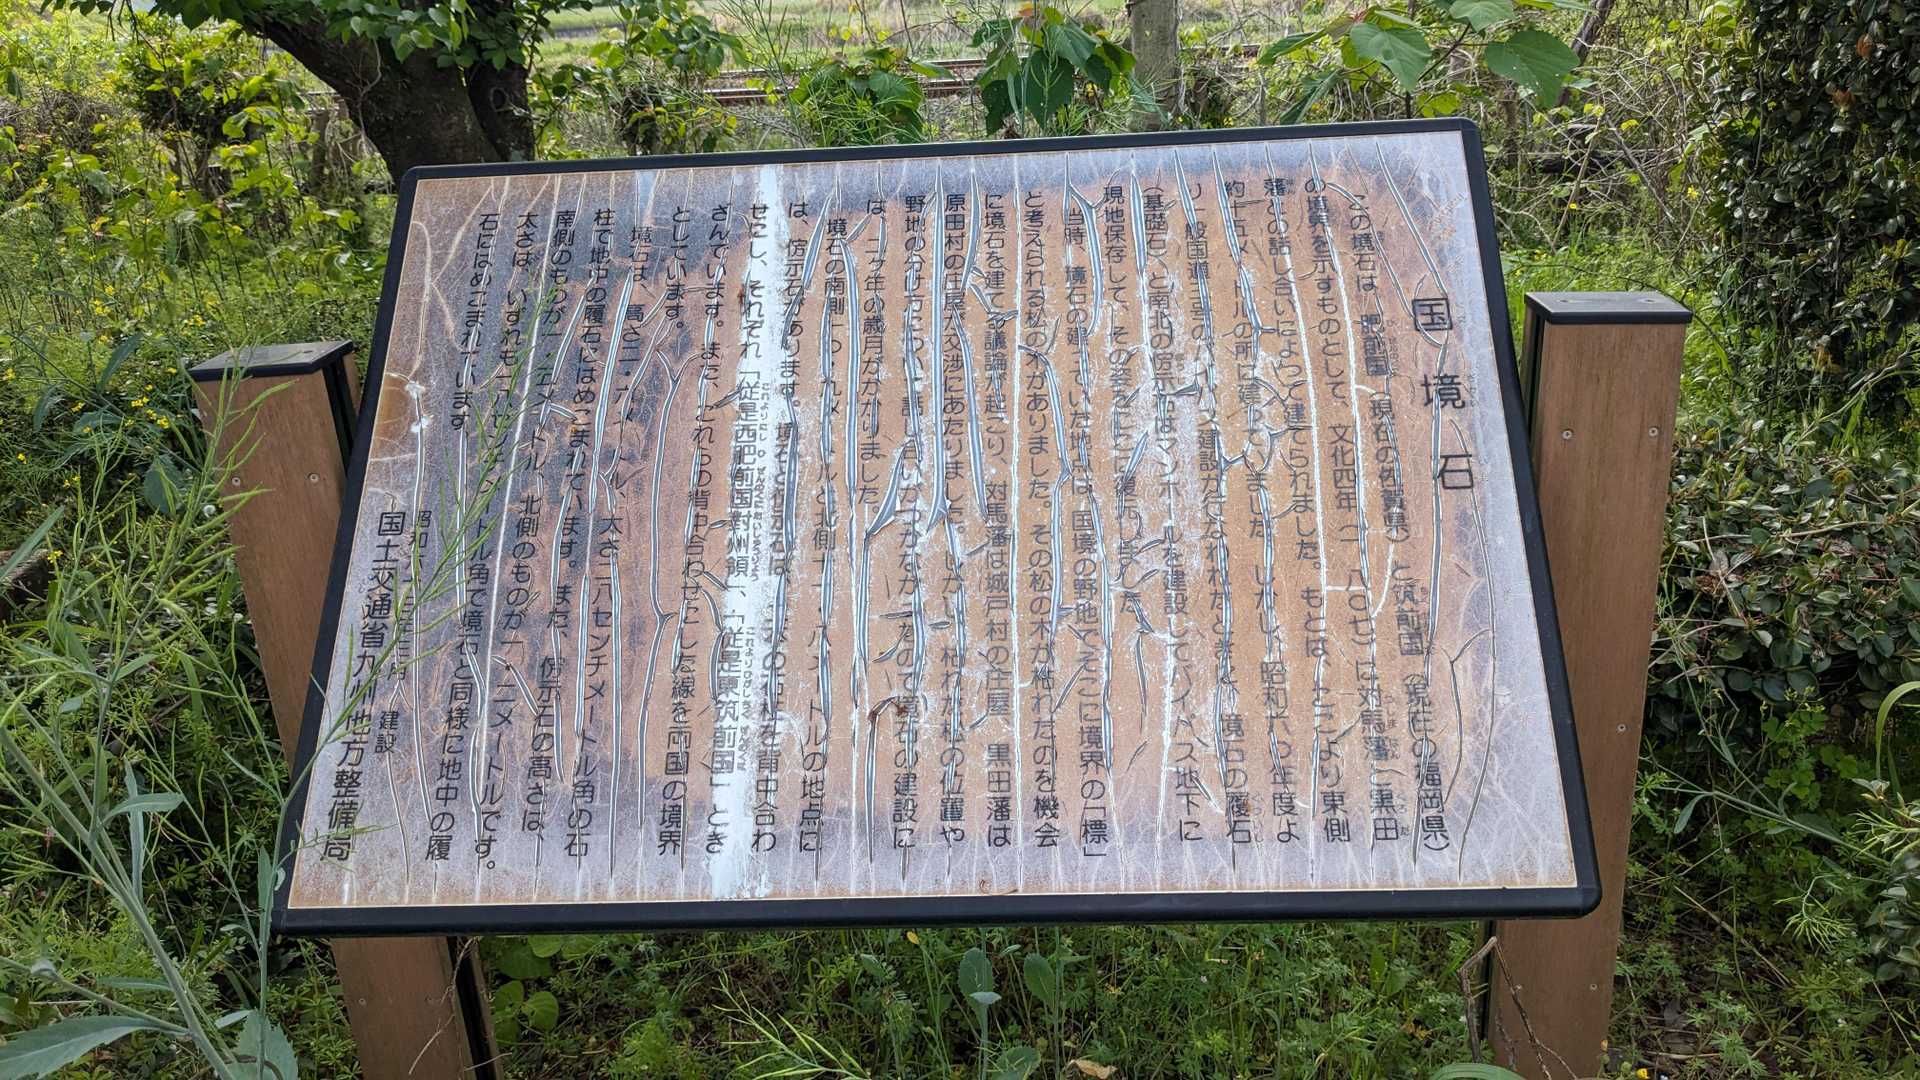 国境石
この境石は、肥前国（現在の佐賀県）と筑前国（現在の福岡県）
の境界を示すものとして、文化四年（一八〇七）に対馬藩と黒田
藩との話し合いによって建てられました。もとは、ここより東側
約十五メートルの所に建っていました。しかし、昭和六〇年度よ
り一般国道三号のバイパス建設が行なわれたときに、境石の覆石
（基礎石）と南北の傍示石はマンホールを建設してバイパス地下に
現地保存して、その姿をここに復元しました。
当時、境石の建っていた地点は、国境の野地でそこに境界の「標」
と考えられる松の木がありました。その松の木が枯れたのを機会
に境石を建てる議論が起こり、対馬藩は城戸村の庄屋、黒田藩は
原田村の庄屋が交渉にあたりました。しかし、枯れた松の位置や
野地の分け方について話し合いがつかなかったので境石の建設に
は、二ヶ年の歳月がかかりました。
境石の南側一〇・九メートルと北側十一・八メートルの地点に
は、傍示石があります。境石と傍示石は、二本の石柱を背中合わ
せにし、それぞれ「従是西肥前国対州領」、「従是東筑前国」ときざ
ざんでいます。また、これらの背中合わせにした線を両国の境界
としています。
境石は、高さ二・六メートル、太さ二八センチメートル角の石
柱で地中の覆石にはめこまれています。また、傍示石の高さは、
南側のものが一・五メートル、北側のものが一・二メートルです。
太さは、いずれも センチメートル角で境石と同様に地中の覆
石にはめこまれています。
昭和 年三月 建設
国土交通省九州地方整備局